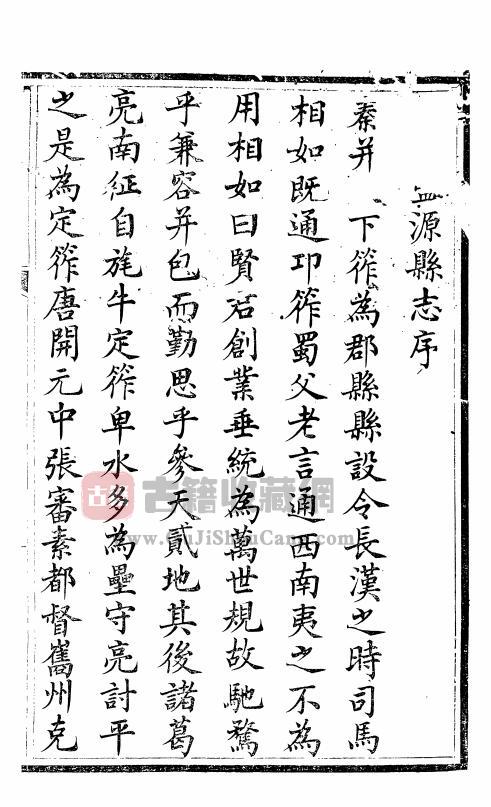 源縣志序
秦并 下筰為郡縣縣設令長漢之時司馬
相如既通邛筰蜀父老言通西南夷之不為
用相如曰賢君創業垂統為萬世規故馳騖
乎兼容并包而勤思乎參天貳地其後諸葛
亮南征自旄牛定筰卑水多為壘守亮討平
之是為定筰唐開元中張審素都督巂州克
古籍收藏網
www.GuJiShouCang.com